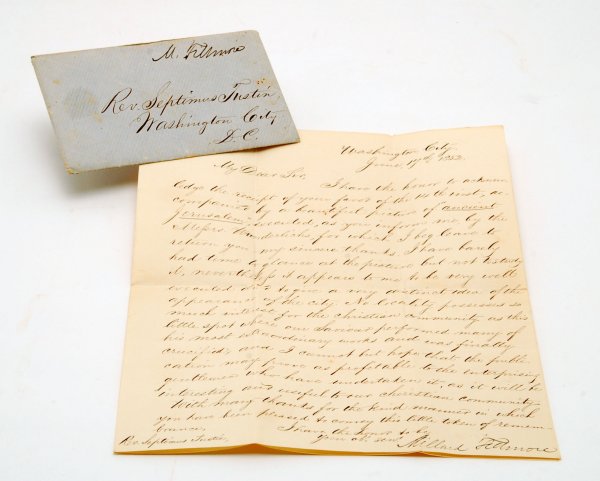 M. Fillmore
Rev. Septimus Tustin
Washington City
D. C.
Washington City
June, 17th 1852.
My Dear Sir,
I have the honor to acknow-
ledge the receipt of your favor of the 14th inst, ac-
companied by a beautiful picture of ancient
Jerusalem executed, as you inform me, by the
Messrs. for which I beg leave to
return you my sincere thanks. I have barely
had time to glance at the picture but not to study
it, nevertheless it appears to me to be very well
executed and to give a very distinct idea of the
appearance of the city. No locality possesses so
much interest for the christian community as this
little spot where our Saviour performed many of
his most extraordinary works and was finally
crucified; and I cannot but hope that the publi-
cation may prove as profitable to the enterprising
gentlemen who have undertaken it, as it will be
interesting and useful to our christian community.
With many thanks for the kind manner in which
you have been pleased to convey this little token of remem-
brance,
I have the honor to be
Your obt. serv.
Millard Fillmore
Rev. Septimus Tustin,